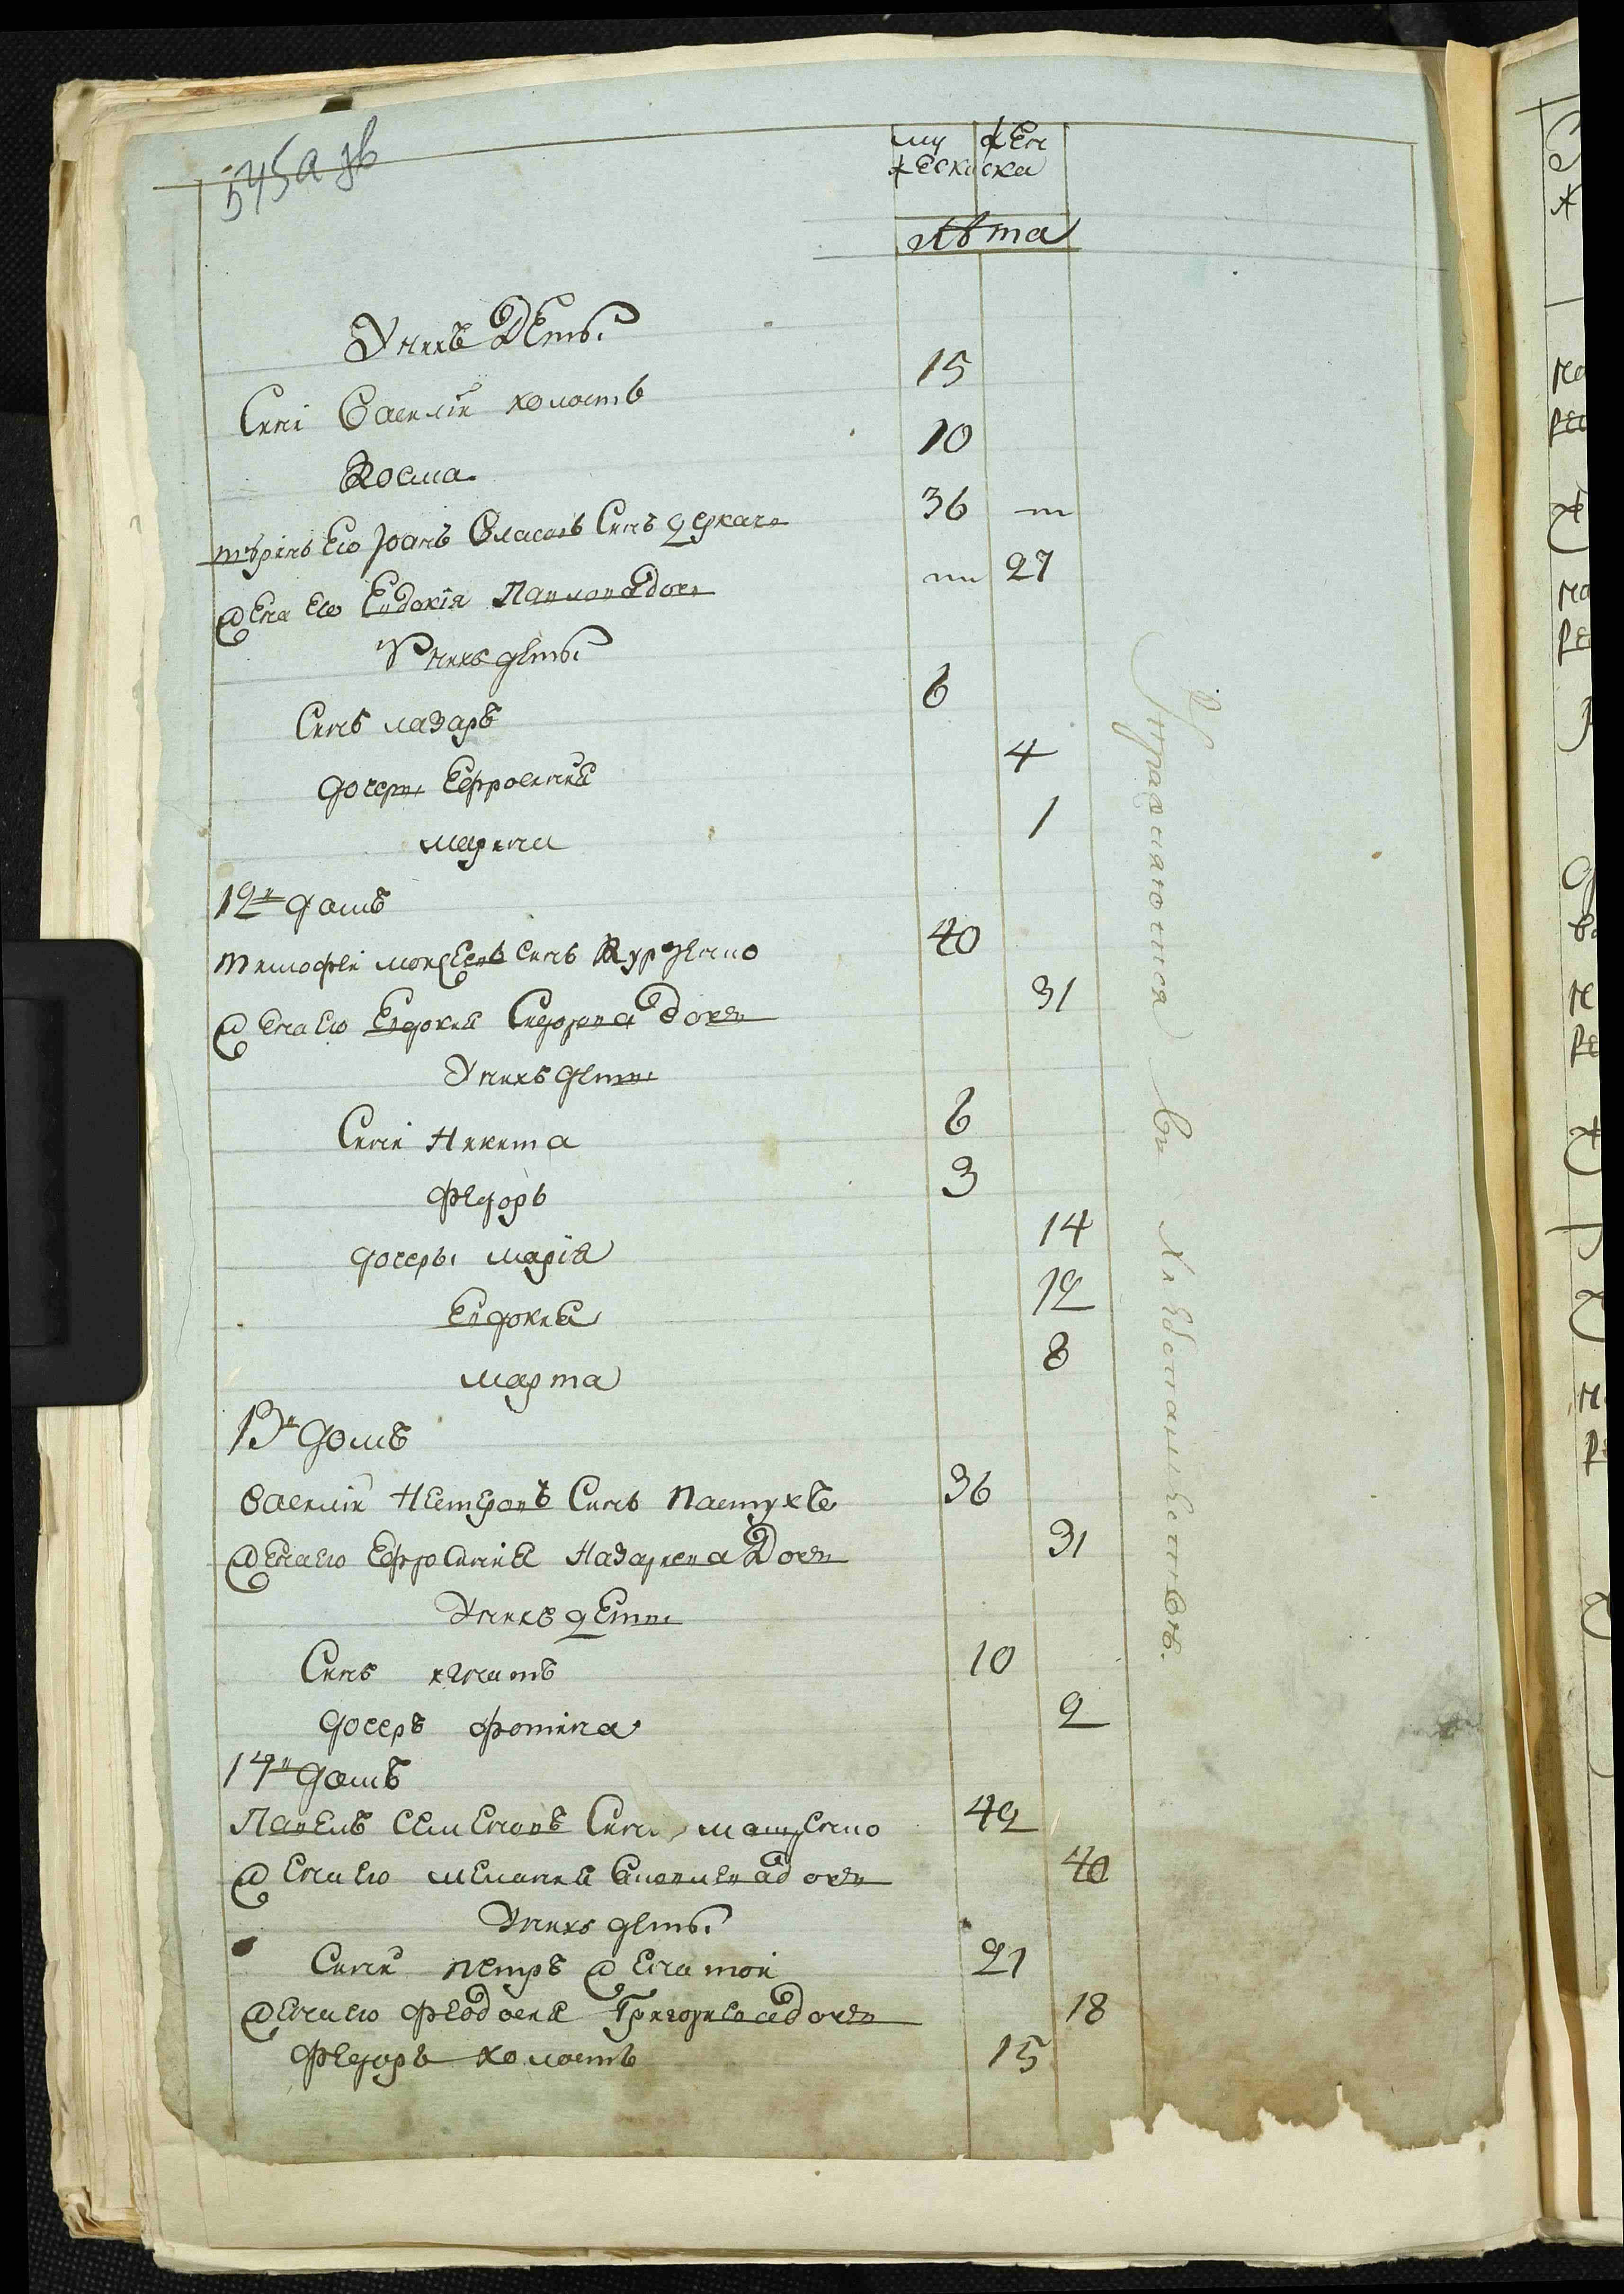 545а зв
му жен
жеска ска
лѣта
У нихъ дети
Сини Василій холостъ 15
Косма 10
Іоанъ Власовъ Синъ деркачъ 36
жена Его Евдокія дочь 27
У нихъ дети
Синъ лазаръ 6
дочери Ефросиния 4
марина 1
12й домъ
тимофей моисеевъ синъ 40
жена Его Евдокия Сидорова дочь 31
У нихъ дети
Сини Никита 6
Федоръ 3
дочеры марія 14
Евдокия 12
марта 8
13й домъ
Василій Нестеровъ Синъ Пастухъ 36
жена его Ефросиния Назарiева дочь 31
У нихъ дети
Синъ игнатъ 10
дочеръ фотина 2
14й домъ
Павелъ семеновъ Синъ мащенко 42
жена его мелания дочь 40
У нихъ дети
Сини петръ женатой 21
жена его Феодосия Григориева дочь 18
Федоръ холостъ 15
Упражняются въ хлебопашестве.